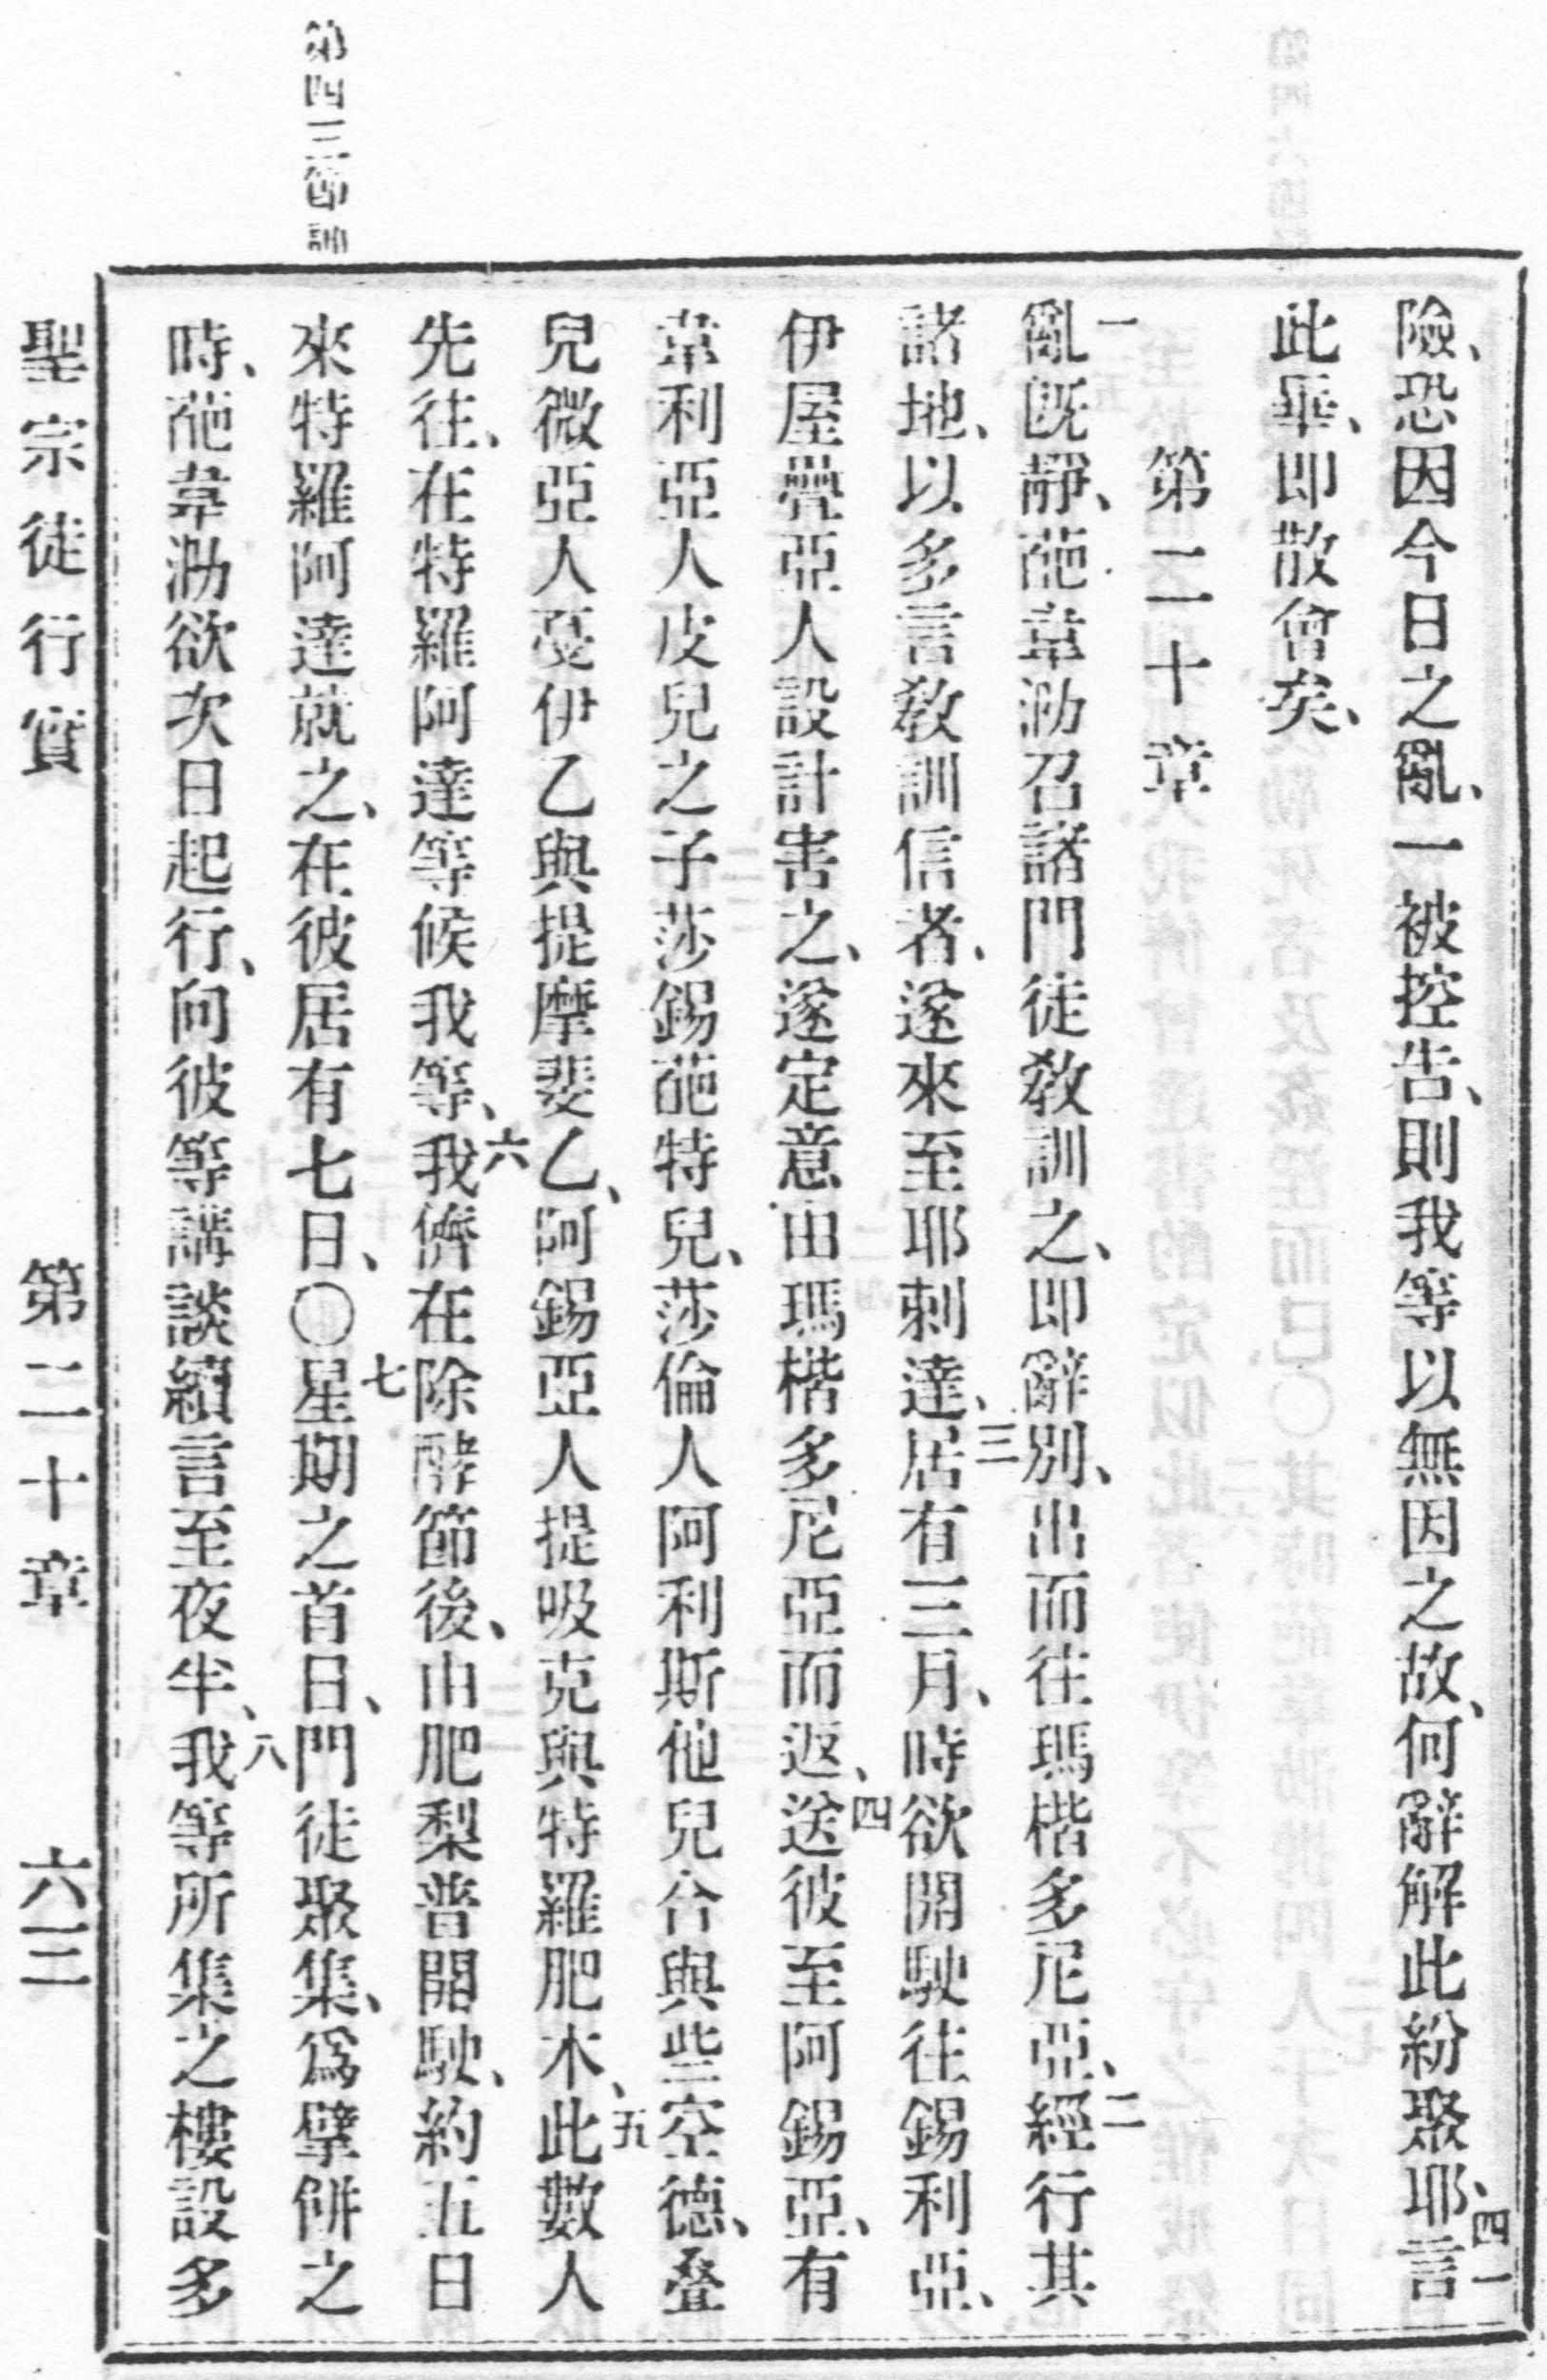 險、恐因今日之亂、一被控告、則我等以無因之故、何辭解此紛聚耶、四一言
此畢、即散會矣、
第二十章
一亂旣靜、葩韋泐召諸門徒敎訓之、即辭別、出而往瑪楷多尼亞、二經行其
諸地、以多言敎訓信者、遂來至耶剌達、三居有三月、時欲開駛往錫利亞、
伊屋疊亞人設計害之、遂定意由瑪楷多尼亞而返、四送彼至阿錫亞、有
韋利亞人皮兒之子莎錫葩特兒、莎倫人阿利斯他兒合與些空德、叠
兒微亞人戛伊乙與提摩斐乙、阿錫亞人提吸克與特羅肥木、五此數人
先往、在特羅阿達等候我等、六我儕在除酵節後、由肥梨普開駛、約五日
來特羅阿達就之、在彼居有七日、〇七星期之首日、門徒聚集、爲擘餠之
時、葩韋泐欲次日起行、向彼等講談續言至夜半、八我等所集之樓設多
第四三節註
聖宗徒行實 第二十章 六三